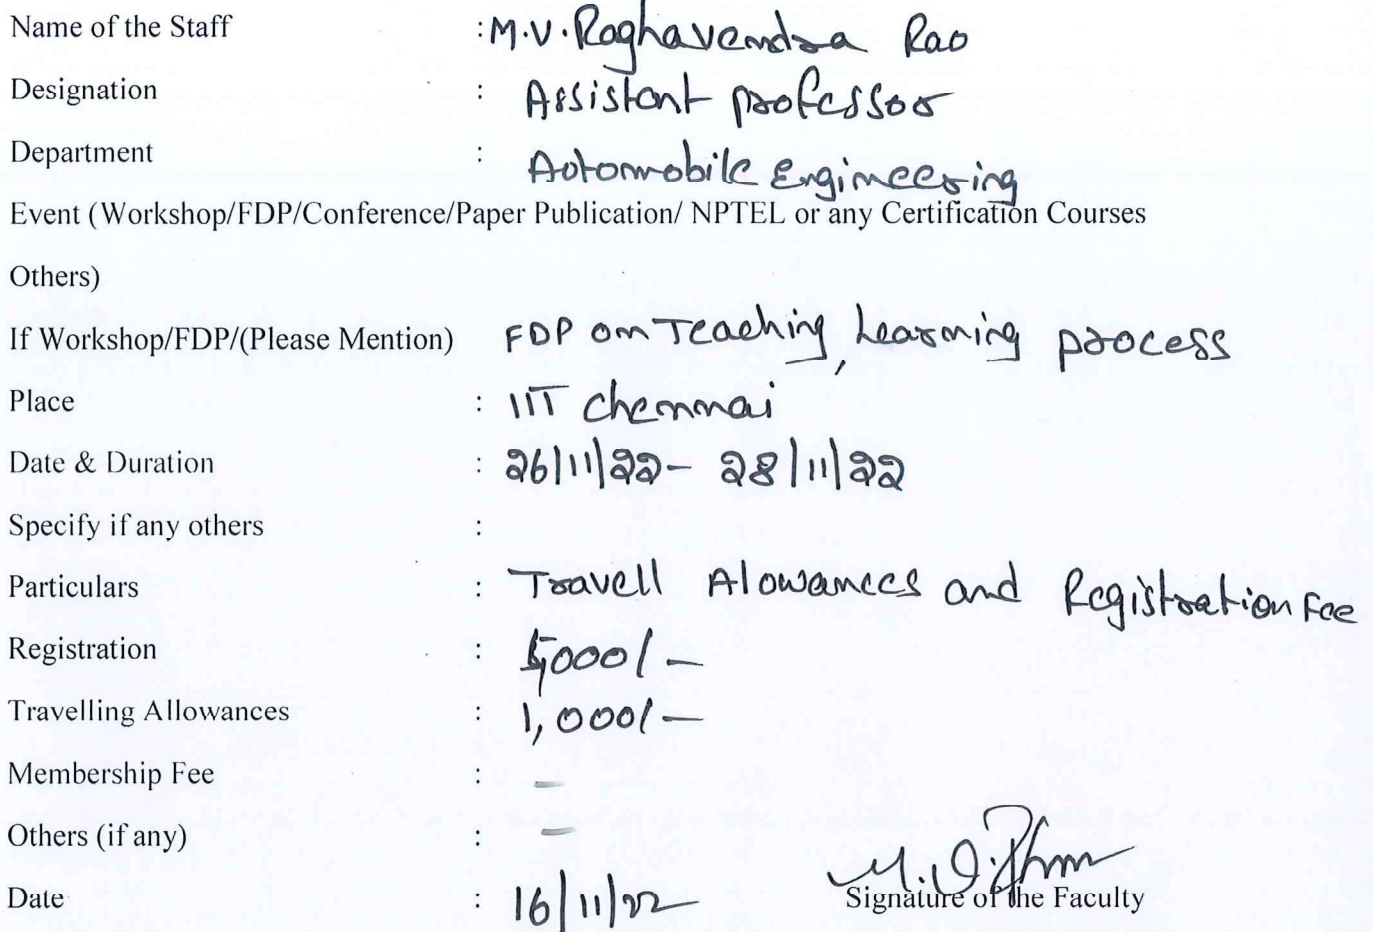 Name of the Staff : M.V. Raghavendra Rao
Designation : Assistant professor
Department : Automobile Engineering
Event (Workshop/FDP/Conference/Paper Publication/ NPTEL or any Certification Courses
Others)
If Workshop/FDP/(Please Mention) FDP on Teaching, Learning process
Place : IIT chennai
Date & Duration : 26/11/22 - 28/11/22
Specify if any others :
Particulars : Travell Alowances and Registration Fee
Registration : 5,000/-
Travelling Allowances : 1,000/-
Membership Fee : -
Others (if any) : -
Date : 16/11/22
Signature of the Faculty